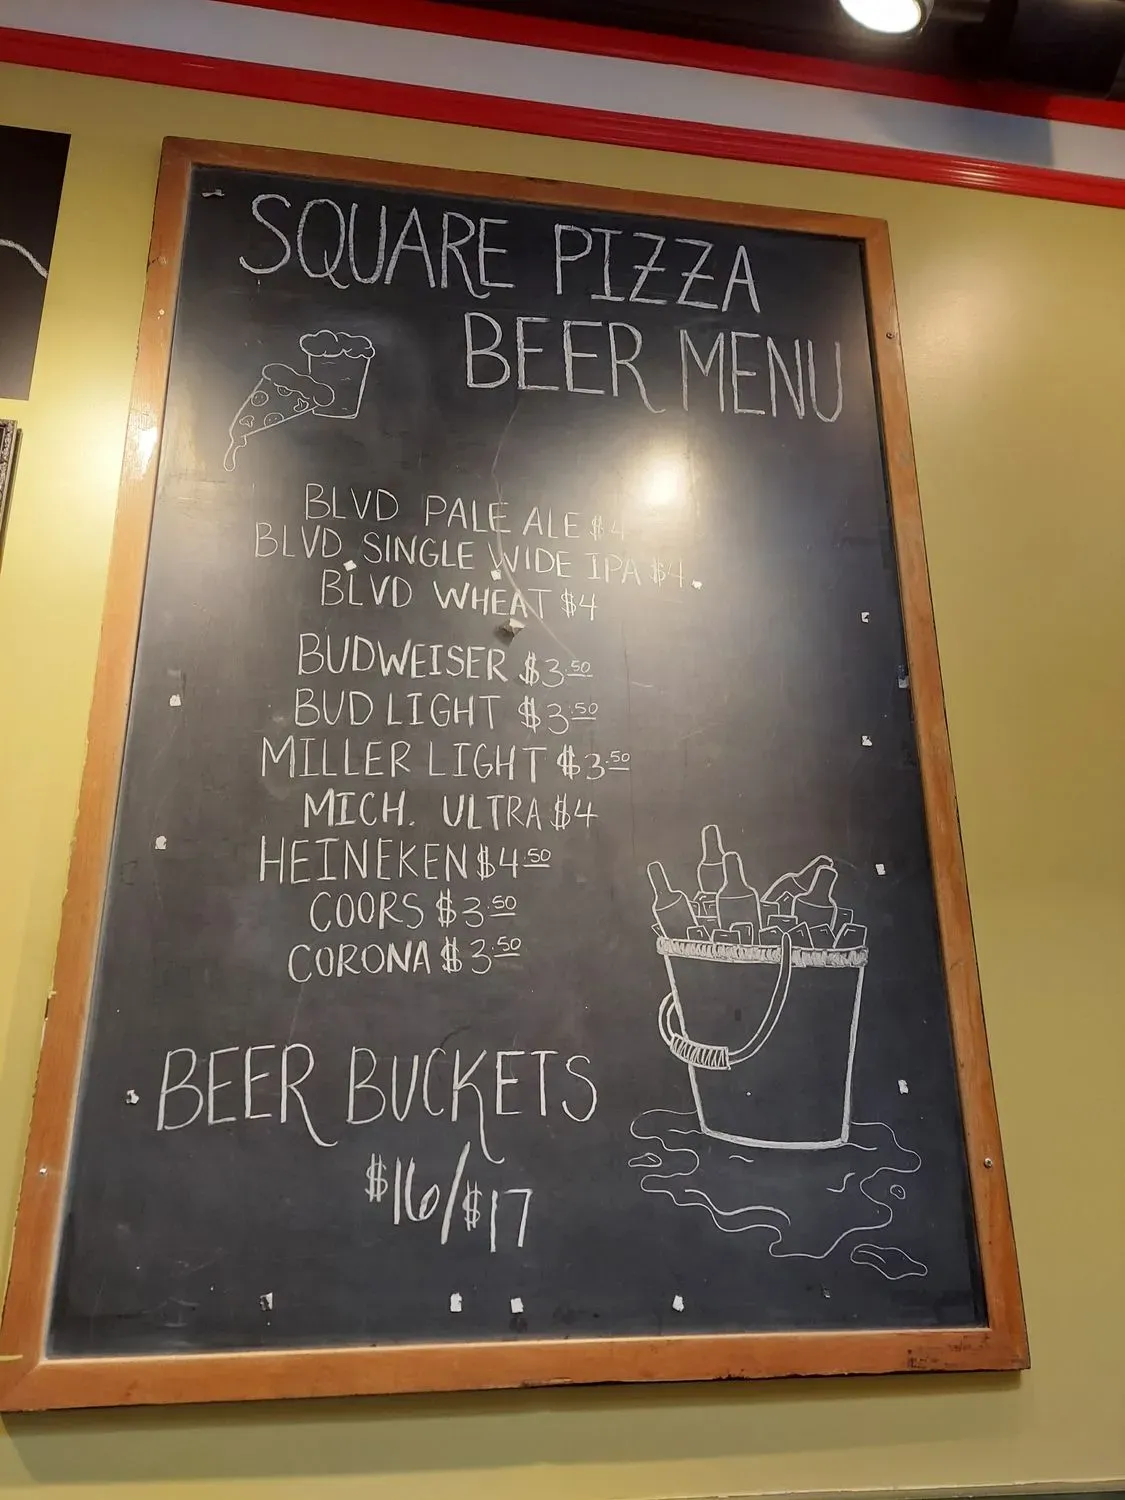 SQUARE PIZZA
BEER MENU
BLVD PALE ALE $4
BLVD SINGLE WIDE IPA $4
BLVD WHEAT $4
BUDWEISER $3.50
BUD LIGHT $3.50
MILLER LIGHT $3.50
MICH. ULTRA $4
HEINEKEN $4.50
COORS $3.50
CORONA $3.50
BEER BUCKETS
$16/$17